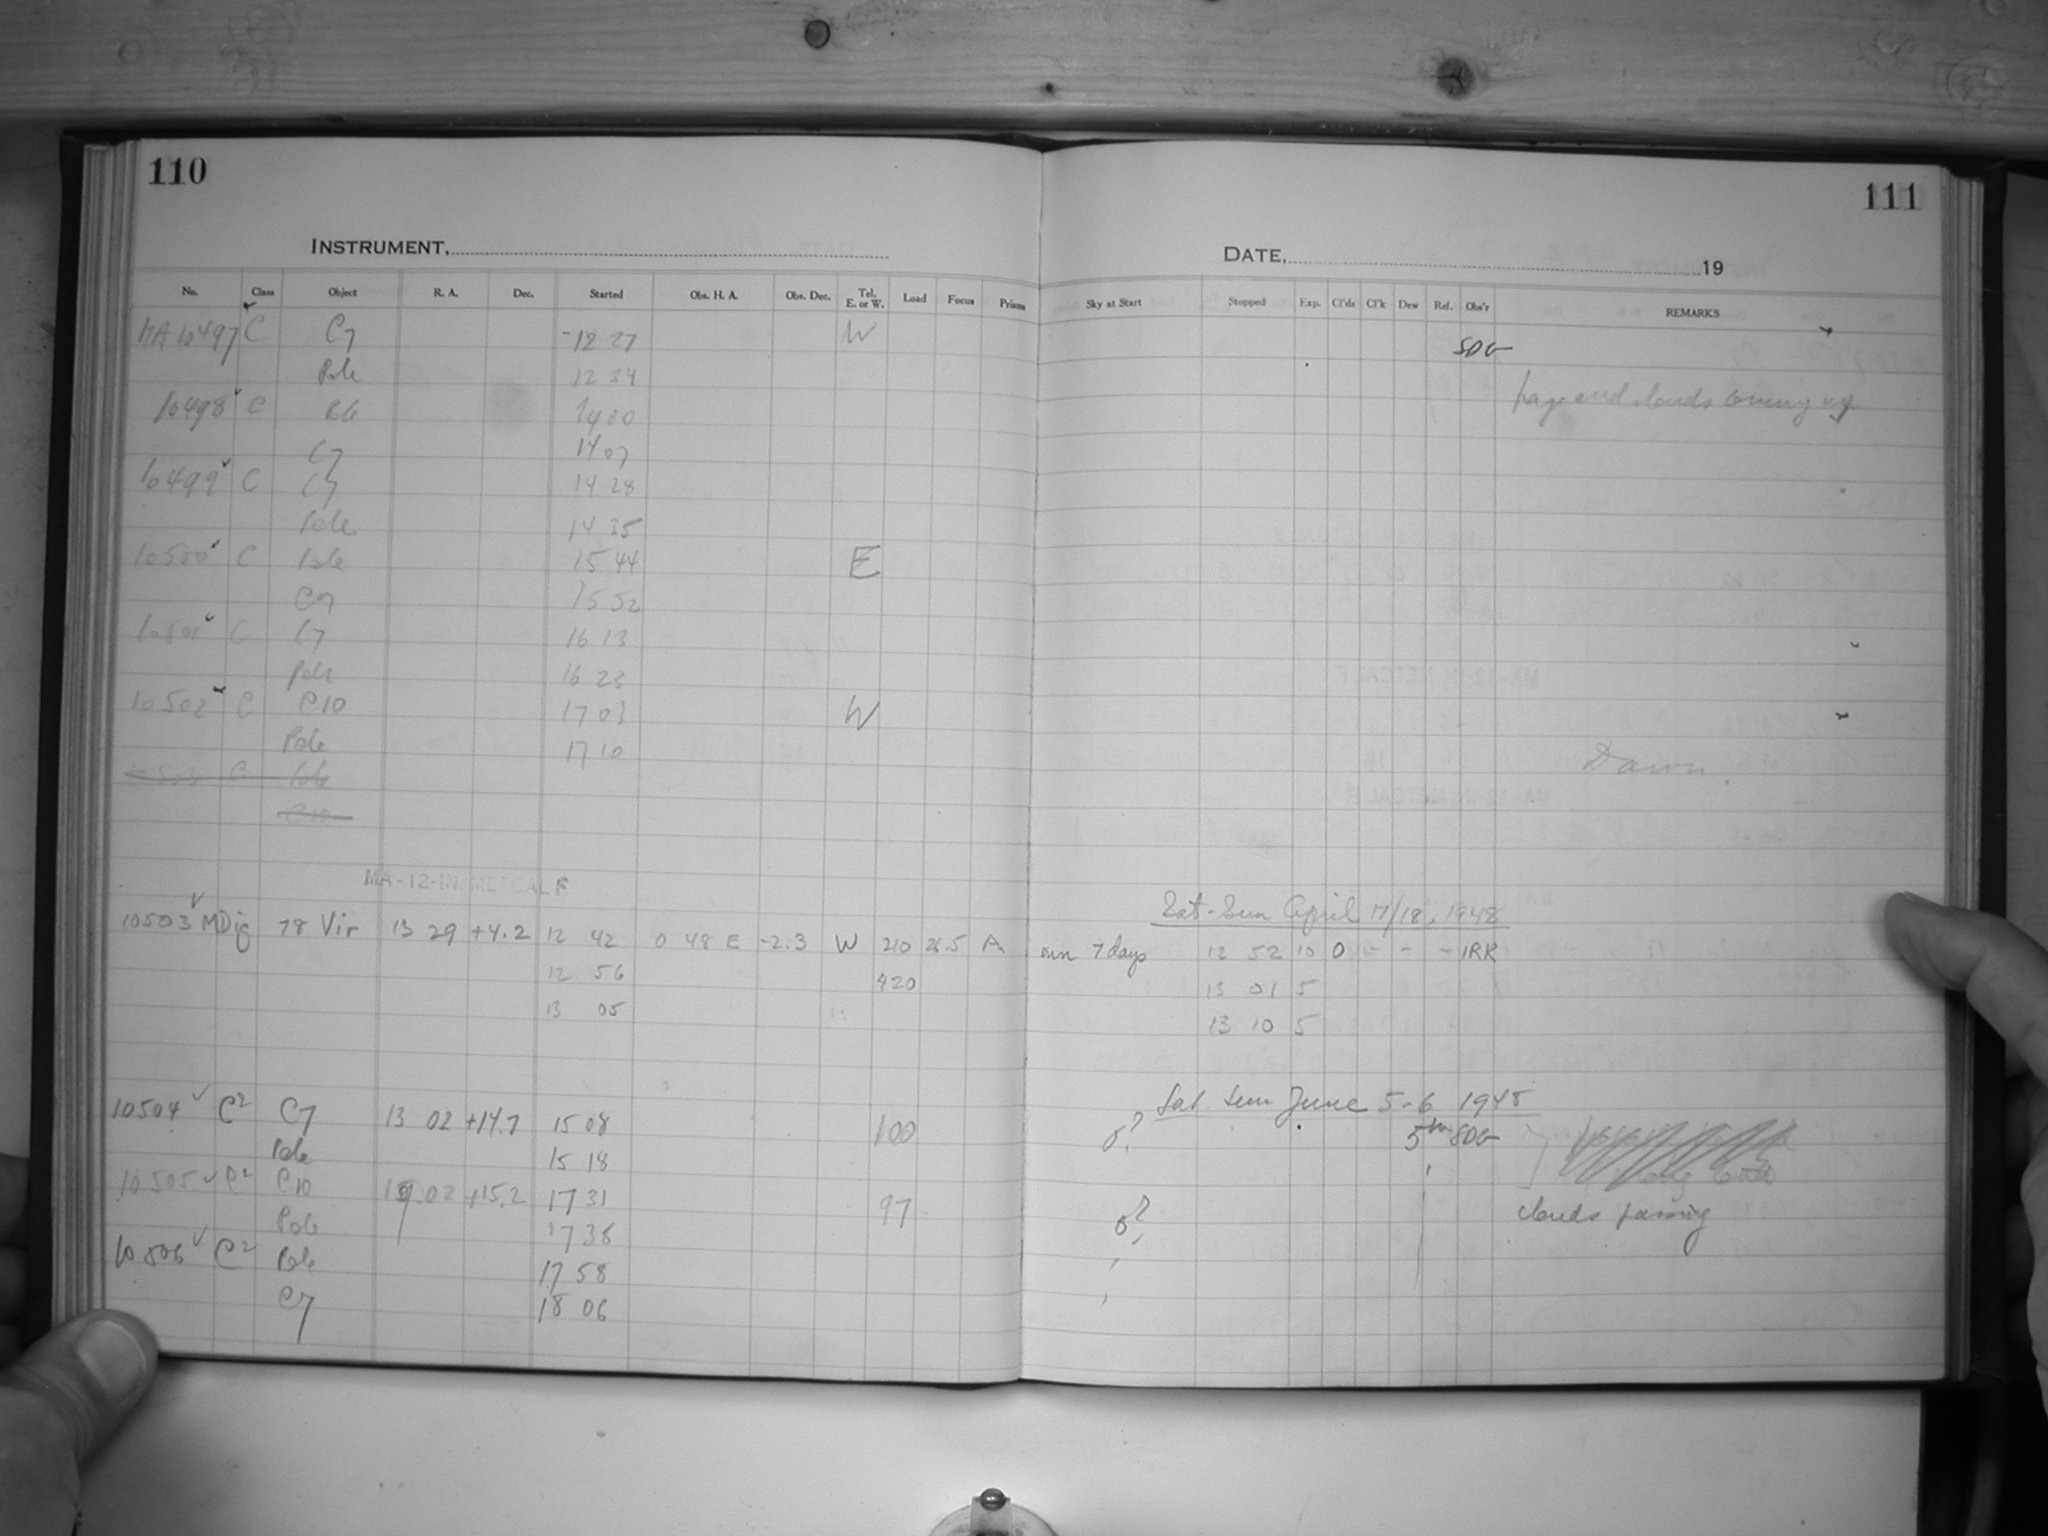 110
111
INSTRUMENT,
DATE, 19
No. Class Object R. A. Dec. Started Obs. H. A. Obs. Dec. Tel. E. or W. Load Focus Prisms Sky at Start Stopped Exp. Cl'ds Cl'k Dew Ref. Obs'r REMARKS
MA 10497 C C7 12 27 W SDG
Pole 12 34
10498 C Pole 14 00 clouds coming up
C7 14 07
10499 C C7 14 28
Pole 14 35
10500 C Pole 15 44 E
C7 15 52
10501 C C7 16 13
Pole 16 23
10502 C C10 17 03 W
Pole 17 10 Dawn.
10503 C Pole
C10
MA-12-IN. METCALF
Sat-Sun April 17/18, 1948
10503 MDig 78 Vir 13 29 +4.2 12 42 0 48 E -2.3 W 210 26.5 A mn 7 days 12 52 10 0 - - - IRK
12 56 420 13 01 5
13 05 13 10 5
Sat Sun June 5-6 1948
10504 C2 C7 13 02 +14.7 15 08 100 0? 5m SDG
Pole 15 18
10505 C2 C10 19.02 +15.2 17 31 97 0? clouds passing
Pole 17 38
10506 C2 Pole 17 58
C7 18 06